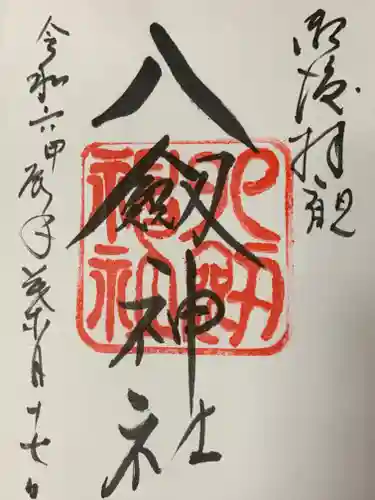 御渡拝観
八劔神社
令和六甲辰年葉月十七日